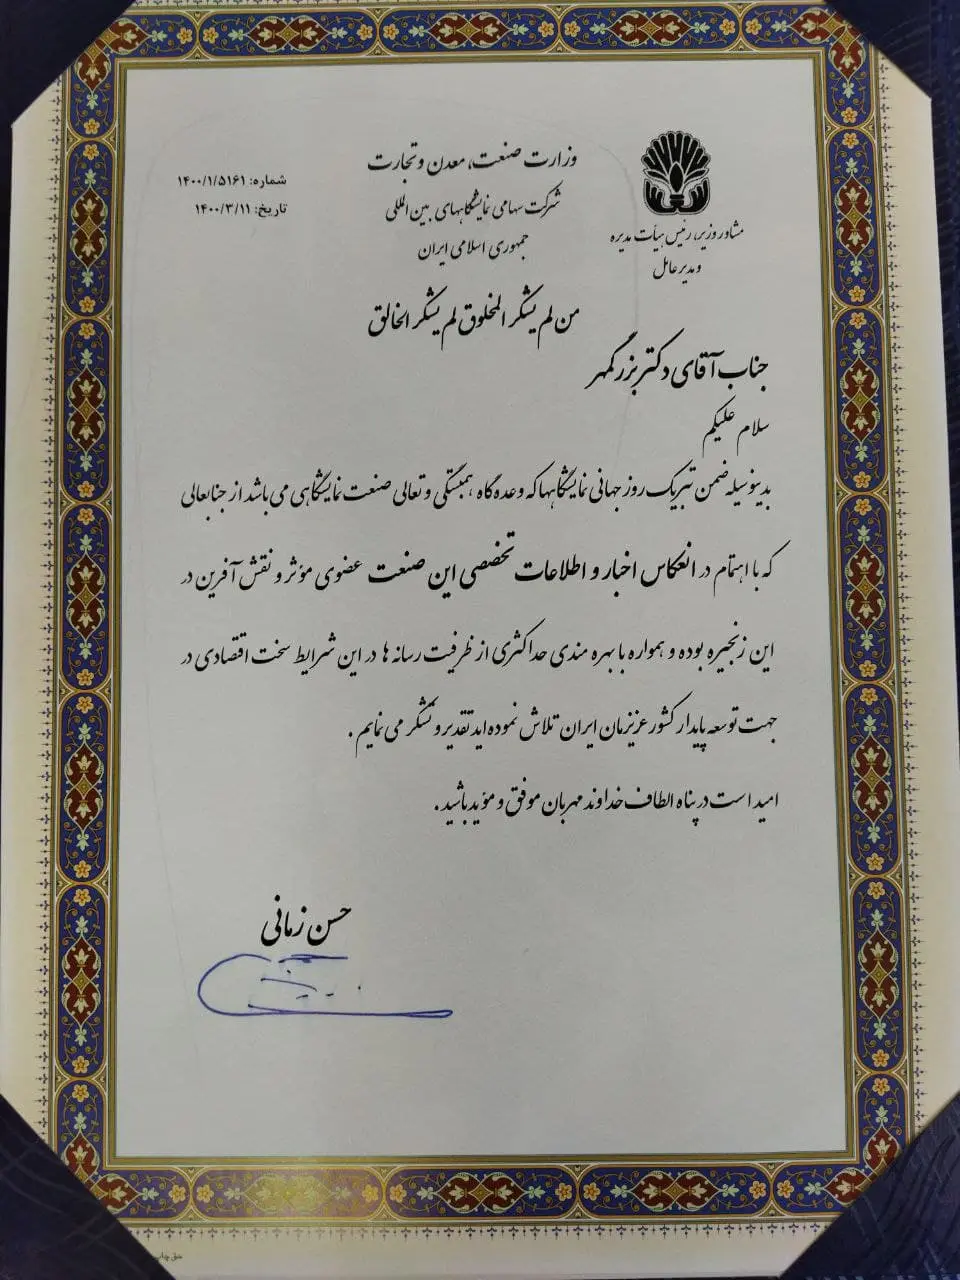 وزارت صنعت، معدن و تجارت
شرکت سهامی نمایشگاههای بین المللی
جمهوری اسلامی ایران
مشاور وزیر، رئیس هیأت مدیره
و مدیر عامل
شماره: ۱۴۰۰/۱/۵۱۶۱
تاریخ: ۱۴۰۰/۳/۱۱
من لم یشکر المخلوق لم یشکر الخالق
جناب آقای دکتر بزرگمهر
سلام علیکم
بدینوسیله ضمن تبریک روز جهانی نمایشگاهها که وعده گاه همبستگی و تعالی صنعت نمایشگاهی می باشد از جنابعالی
که با اهتمام در انعکاس اخبار و اطلاعات تخصصی این صنعت عضوی مؤثر و نقش آفرین در
این زنجیره بوده و همواره با بهره مندی حداکثری از ظرفیت رسانه ها در این شرایط سخت اقتصادی در
جهت توسعه پایدار کشور عزیزمان ایران تلاش نموده اید تقدیر و تشکر می نمایم .
امید است در پناه الطاف خداوند مهربان موفق و مؤید باشید .
حسن زمانی